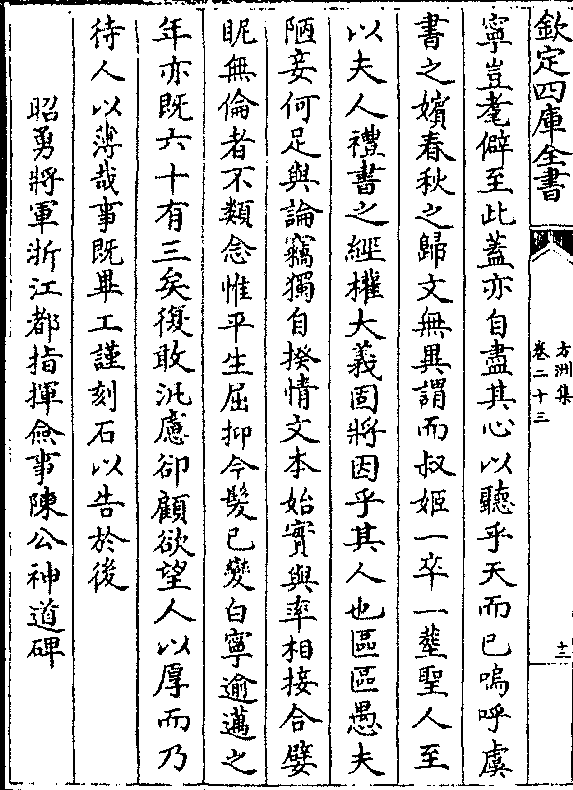 欽定四庫全書
方洲集
卷二十三
十三
寧豈耄僻至此蓋亦自盡其心以聽乎天而已嗚呼虞
書之嬪春秋之歸文無異謂而叔姬一卒一塟聖人至
以夫人禮書之經權大義固將因乎其人也區區愚夫
陋妾何足與論竊獨自揆情文本始實與率相接合嬖
昵無倫者不類念惟平生屈抑今髮已變白寧逾邁之
年亦既六十有三矣復敢汎慮卻顧欲望人以厚而乃
待人以薄哉事既畢工謹刻石以告於後
昭勇將軍浙江都指揮僉事陳公神道碑